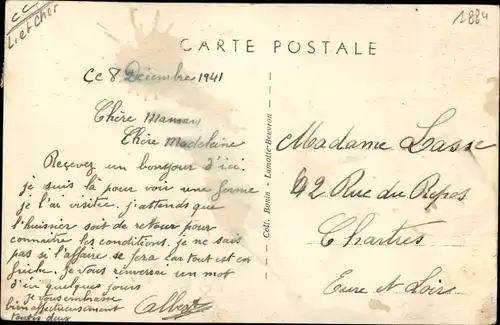 Loir et Cher
1884
CARTE POSTALE
Ce 8 Décembre 1941
Chère Maman
Chère Madeleine
Reçevez un bonjour d'ici.
je suis là pour voir une ferme
je l'ai visitée. j'attends que
l'huissier soit de retour pour
connaitre les conditions. je ne sais
pas si l'affaire se fera car tout est en
friche. Je vous renverrai un mot
d'ici quelques jours
je vous embrasse
bien affectueusement
toutes deux
Albert
Coll. Bonin - Lamotte-Beuvron
Madame Lasse
42 Rue du Repos
Chartres
Eure et Loir